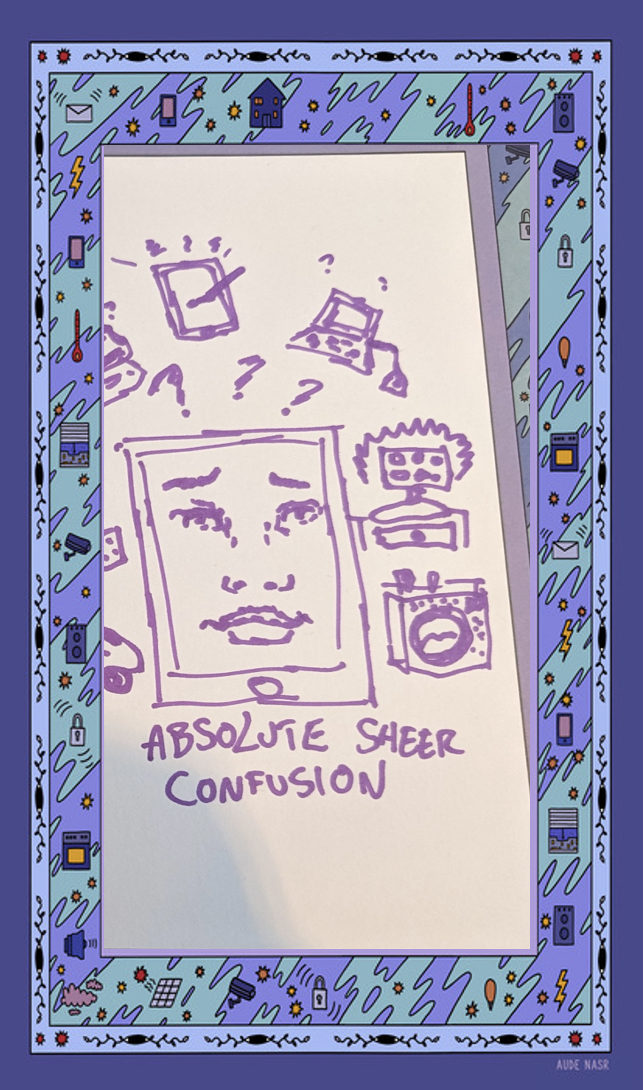 ? ?
? ? ?
ABSOLUTE SHEER
CONFUSION
AUDE NASR